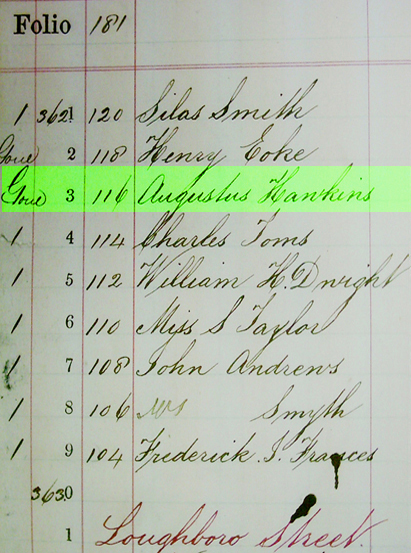 Folio 181
1 3621 120 Silas Smith
Gone 2 118 Henry Eoke
Gone 3 116 Augustus Hawkins
1 4 114 Charles Toms
1 5 112 William H. Dwight
1 6 110 Miss S Taylor
1 7 108 John Andrews
1 8 106 Mrs Smyth
1 9 104 Frederick. J. Frances
3630
1 Loughboro Street.